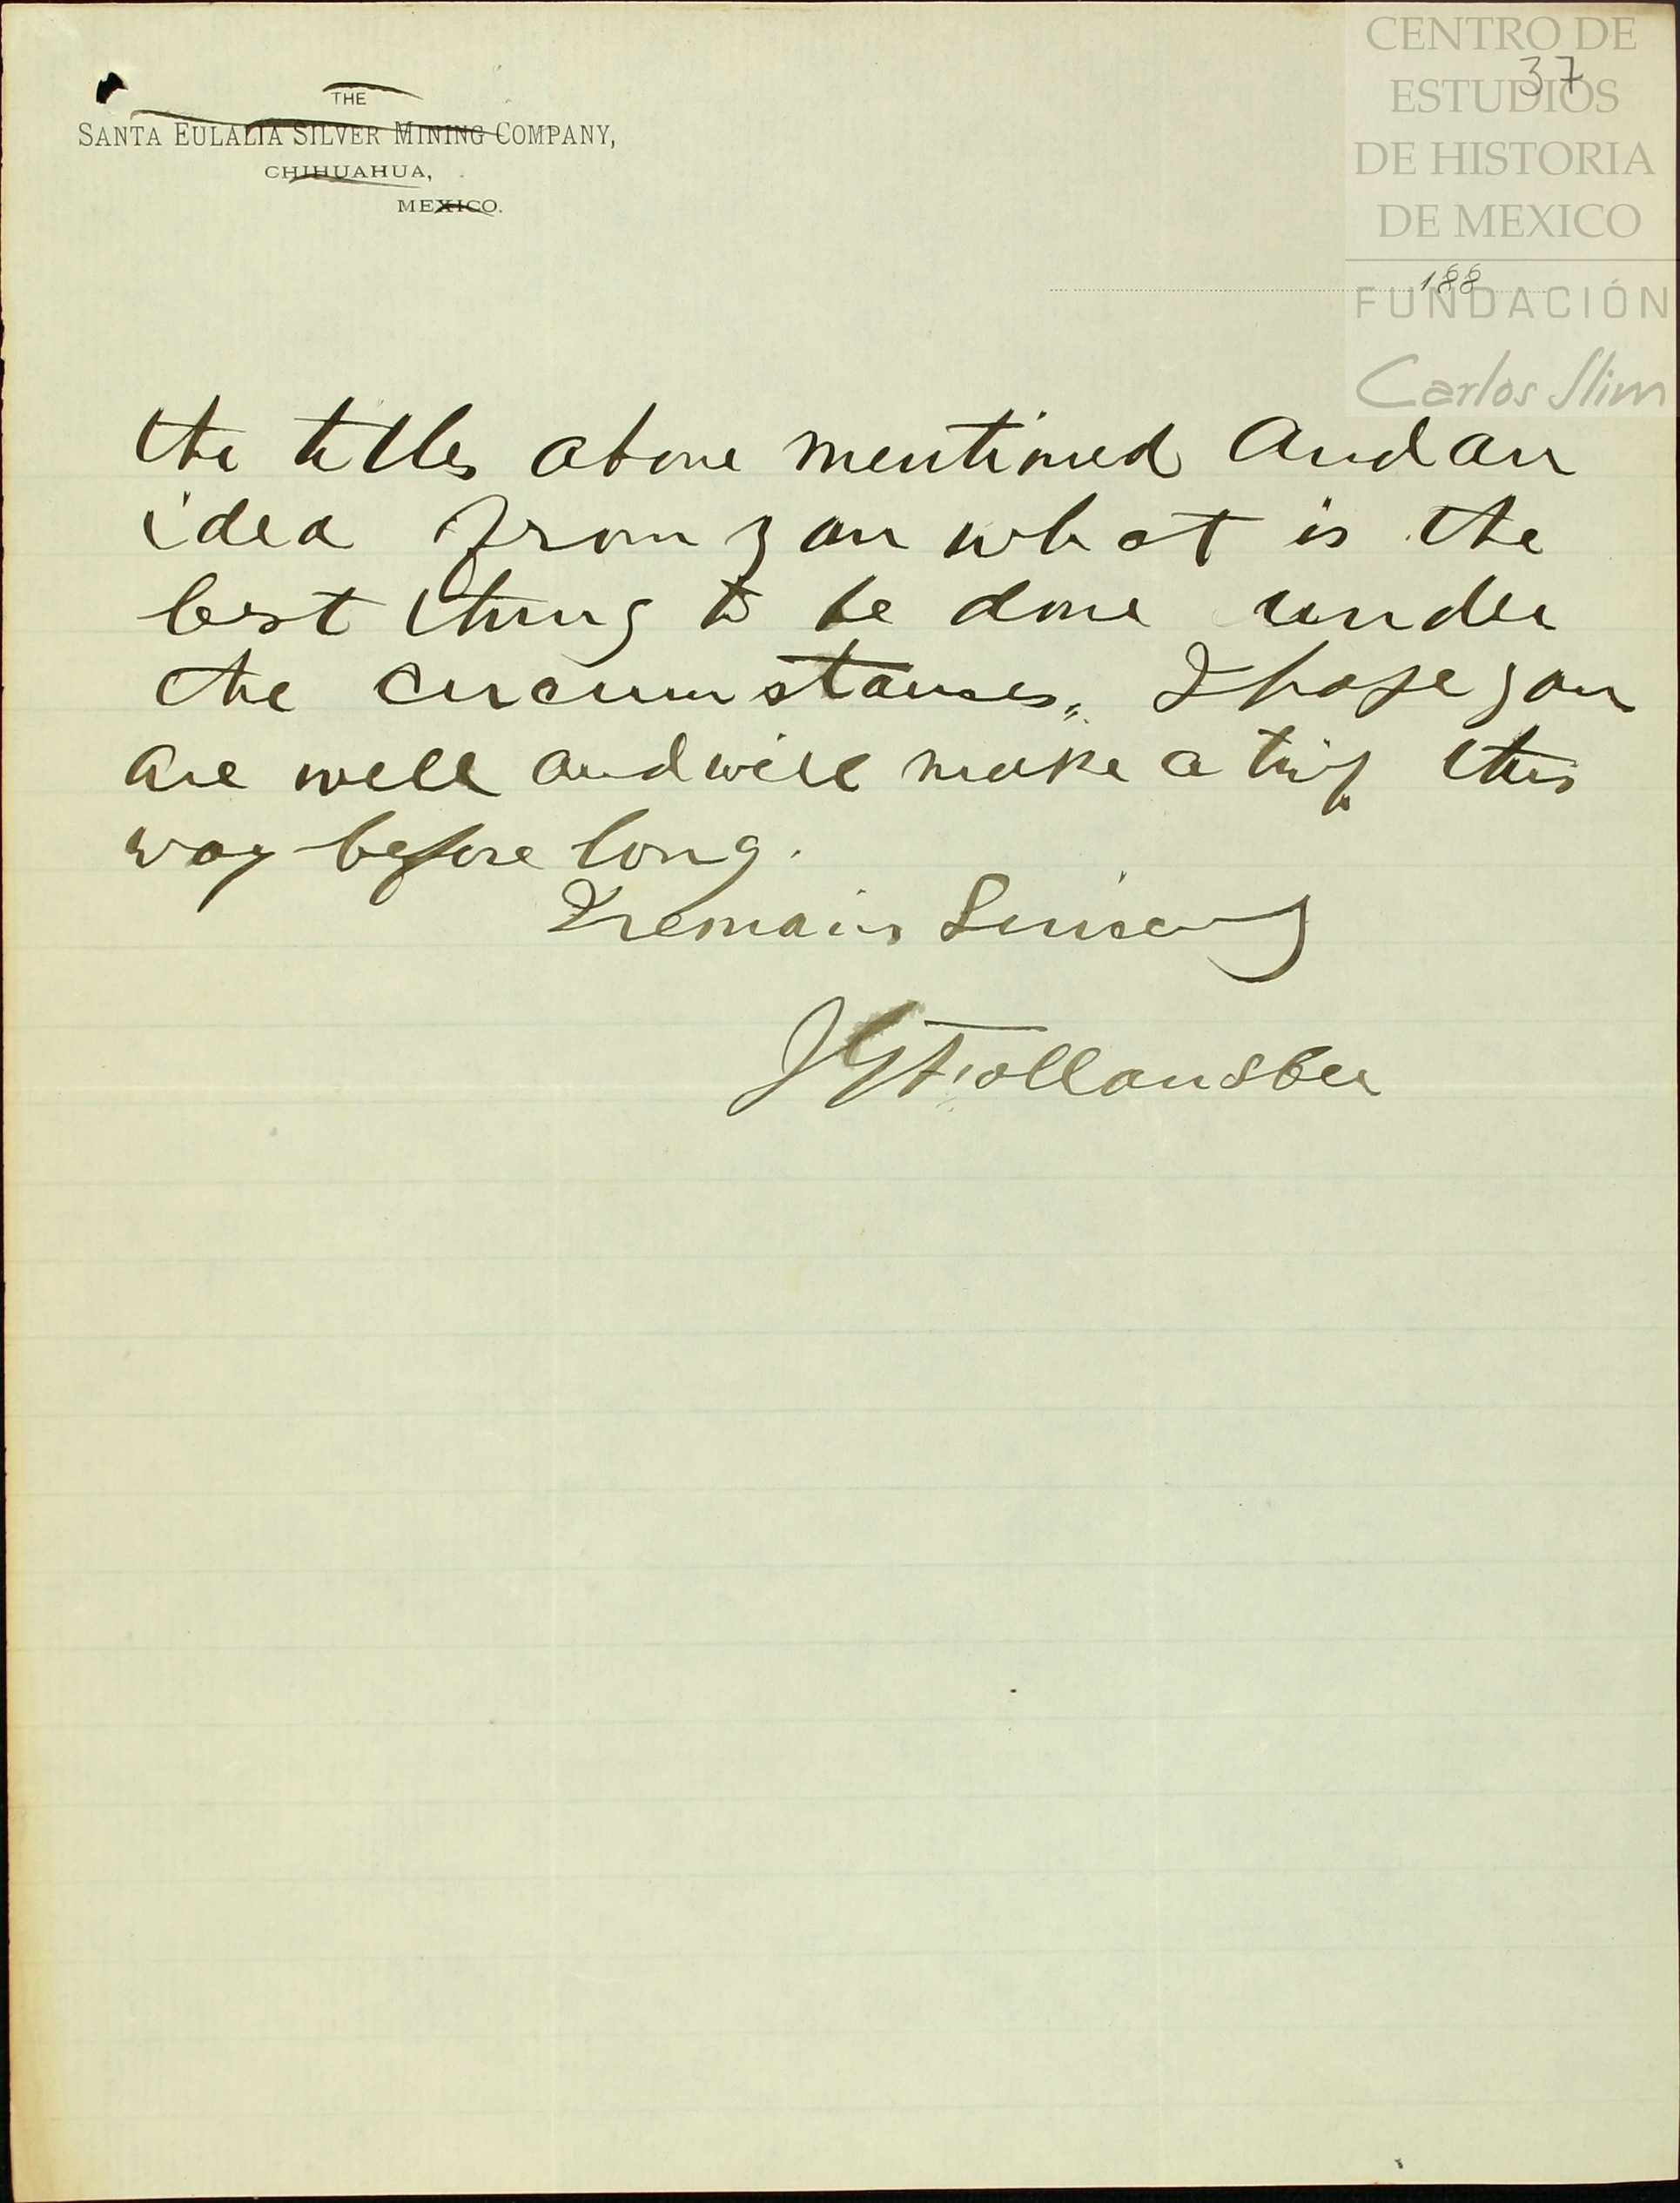 CENTRO DE
ESTUDIOS
DE HISTORIA
DE MEXICO
FUNDACIÓN
Carlos Slim
37
THE
SANTA EULALIA SILVER MINING COMPANY,
CHIHUAHUA,
MEXICO.
188
the titles above mentioned and an
idea from you what is the
best thing to be done under
the circumstances. I hope you
are well and will make a trip this
way before long.
I remain Sincerely
Follansbee